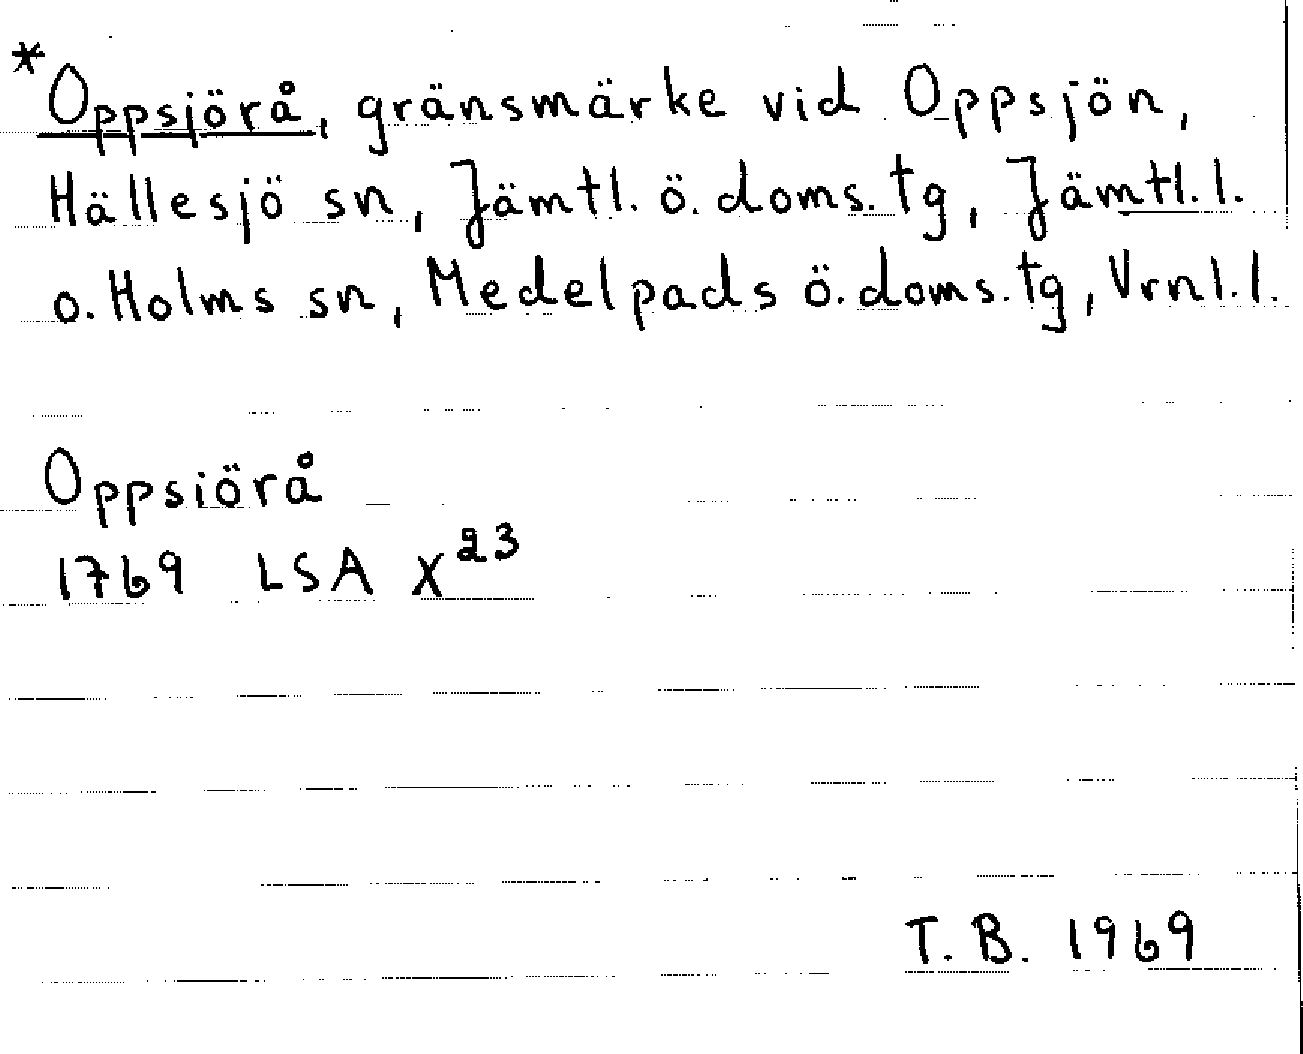 *Oppsjörå, gränsmärke vid Oppsjön,
Hällesjö sn, Jämtl. ö. doms. tg, Jämtl. l.
o. Holms sn, Medelpads ö. doms. tg, Vrnl. l.
Oppsiörå
1769 LSA X²³
T. B. 1969